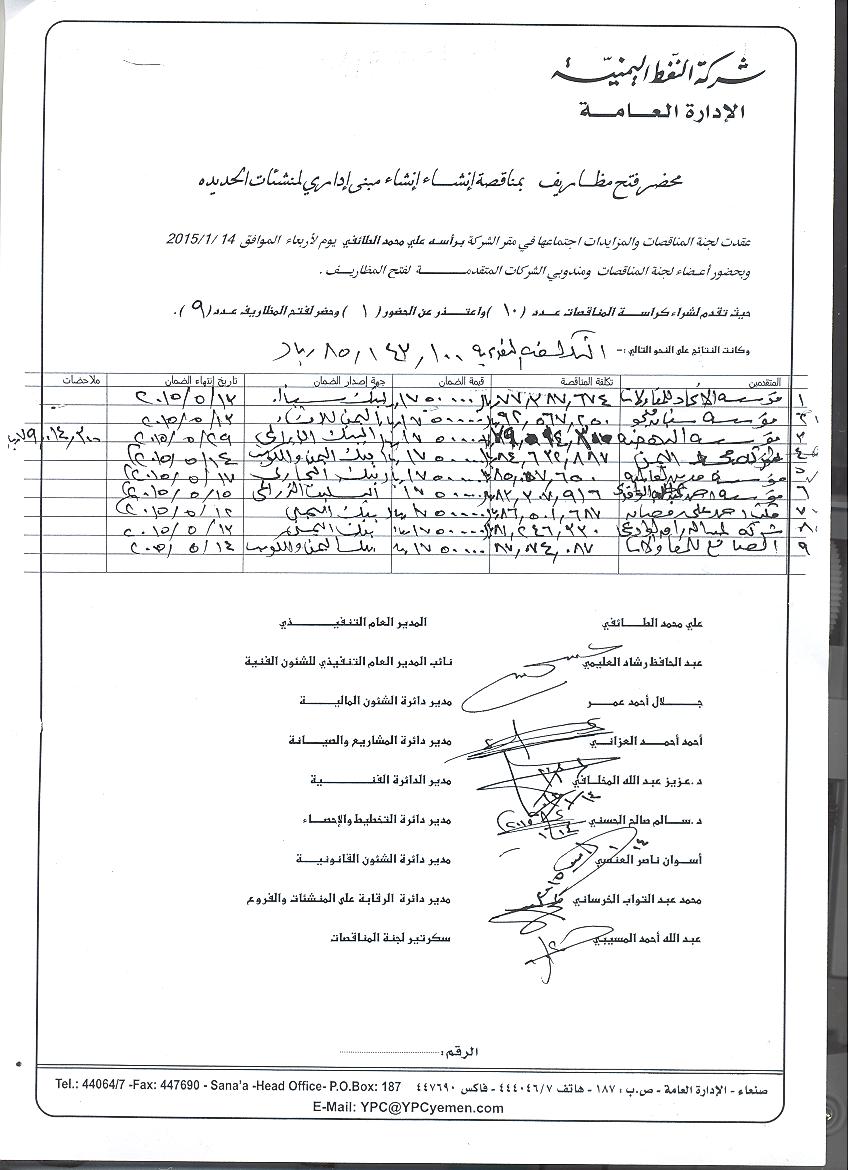 شركة النفط اليمنية
الإدارة العامة
محضر فتح مظاريف بمناقصة إنشاء إنشاء مبنى إداري لمنشئات الحديده
عقدت لجنة المناقصات والمزايدات اجتماعها في مقر الشركة برأسه علي محمد الطائفي يوم لأربعاء الموافق 2015/1/14
وبحضور أعضاء لجنة المناقصات ومندوبي الشركات المتقدمة لفتح المظاريف .
حيث تقدم لشراء كراسة المناقصات عدد (١٠) واعتذر عن الحضور (١) وحضر لفتح المظاريف عدد (٩).
وكانت النتائج على النحو التالي :- التكلفه التقديريه ٨٥,١٤٣,١٠٠ ريال
المتقدمين تكلفة المناقصة قيمة الضمان جهة إصدار الضمان تاريخ إنتهاء الضمان ملاحضات
١ مؤسسه الأتحاد للمقاولات ٧٧,٢٨٧,٦٧٤ ١٧٥٠٠٠٠ بنك سبأ ٢٠١٥/٥/١٢
٢ مؤسسه ٩٢,٥٦٧,٢٥٠ ١٧٥٠٠٠٠ اليمن للانشاء ٢٠١٥/٥/١٢
٣ مؤسسه ١٧٥٠٠٠٠ البنك ٢٠١٥/٥/٢٩
٤ اليمن ٨٤,٦٢٢,٨٨٧ ١٧٥٠٠٠٠ بنك اليمن والكويت ٢٠١٥/٥/١٤
٥ مؤسسه ١٧٥٠٠٠٠ بنك التجاري ٢٠١٥/٥/١٧
٦ مؤسسة احمد ٨٢,٢٠٧,٩١٦ ١٧٥٠٠٠٠ ٢٠١٥/٥/١٥
٧ مكتب احمد علي ٨٦,٥٠١,٦٨٧ ١٧٥٠٠٠٠ بنك اليمني ٢٠١٥/٥/١٢
٨ شركه ٨١,٢٤٦,٢٢٠ ١٧٥٠٠٠٠ بنك اليمني ٢٠١٥/٥/١٢
٩ الصانع للمقاولات ٨٧,٠٧٤,٠٨٧ ١٧٥٠٠٠٠ بنك اليمن والكويت ٢٠١٥/٥/١٤
علي محمد الطائفي المدير العام التنفيذي
عبد الحافظ رشاد العليمي نائب المدير العام التنفيذي للشئون الفنية
جلال أحمد عمر مدير دائرة الشئون المالية
أحمد أحمد العزاني مدير دائرة المشاريع والصيانة
د.عزيز عبد الله المخلافي مدير الدائرة الفنية
د.سالم صالح الحسني مدير دائرة التخطيط والإحصاء
أسوان ناصر العنسي مدير دائرة الشئون القانونية
محمد عبد التواب الخرساني مدير دائرة الرقابة على المنشئات والفروع
عبد الله أحمد المسيبي سكرتير لجنة المناقصات
الرقم:
صنعاء - الإدارة العامة - ص.ب : ١٨٧ - هاتف ٤٤٤٠٤٦/٧ - فاكس ٤٤٧٦٩٠ Tel.: 44064/7 -Fax: 447690 - Sana'a -Head Office- P.O.Box: 187
E-Mail: YPC@YPCyemen.com